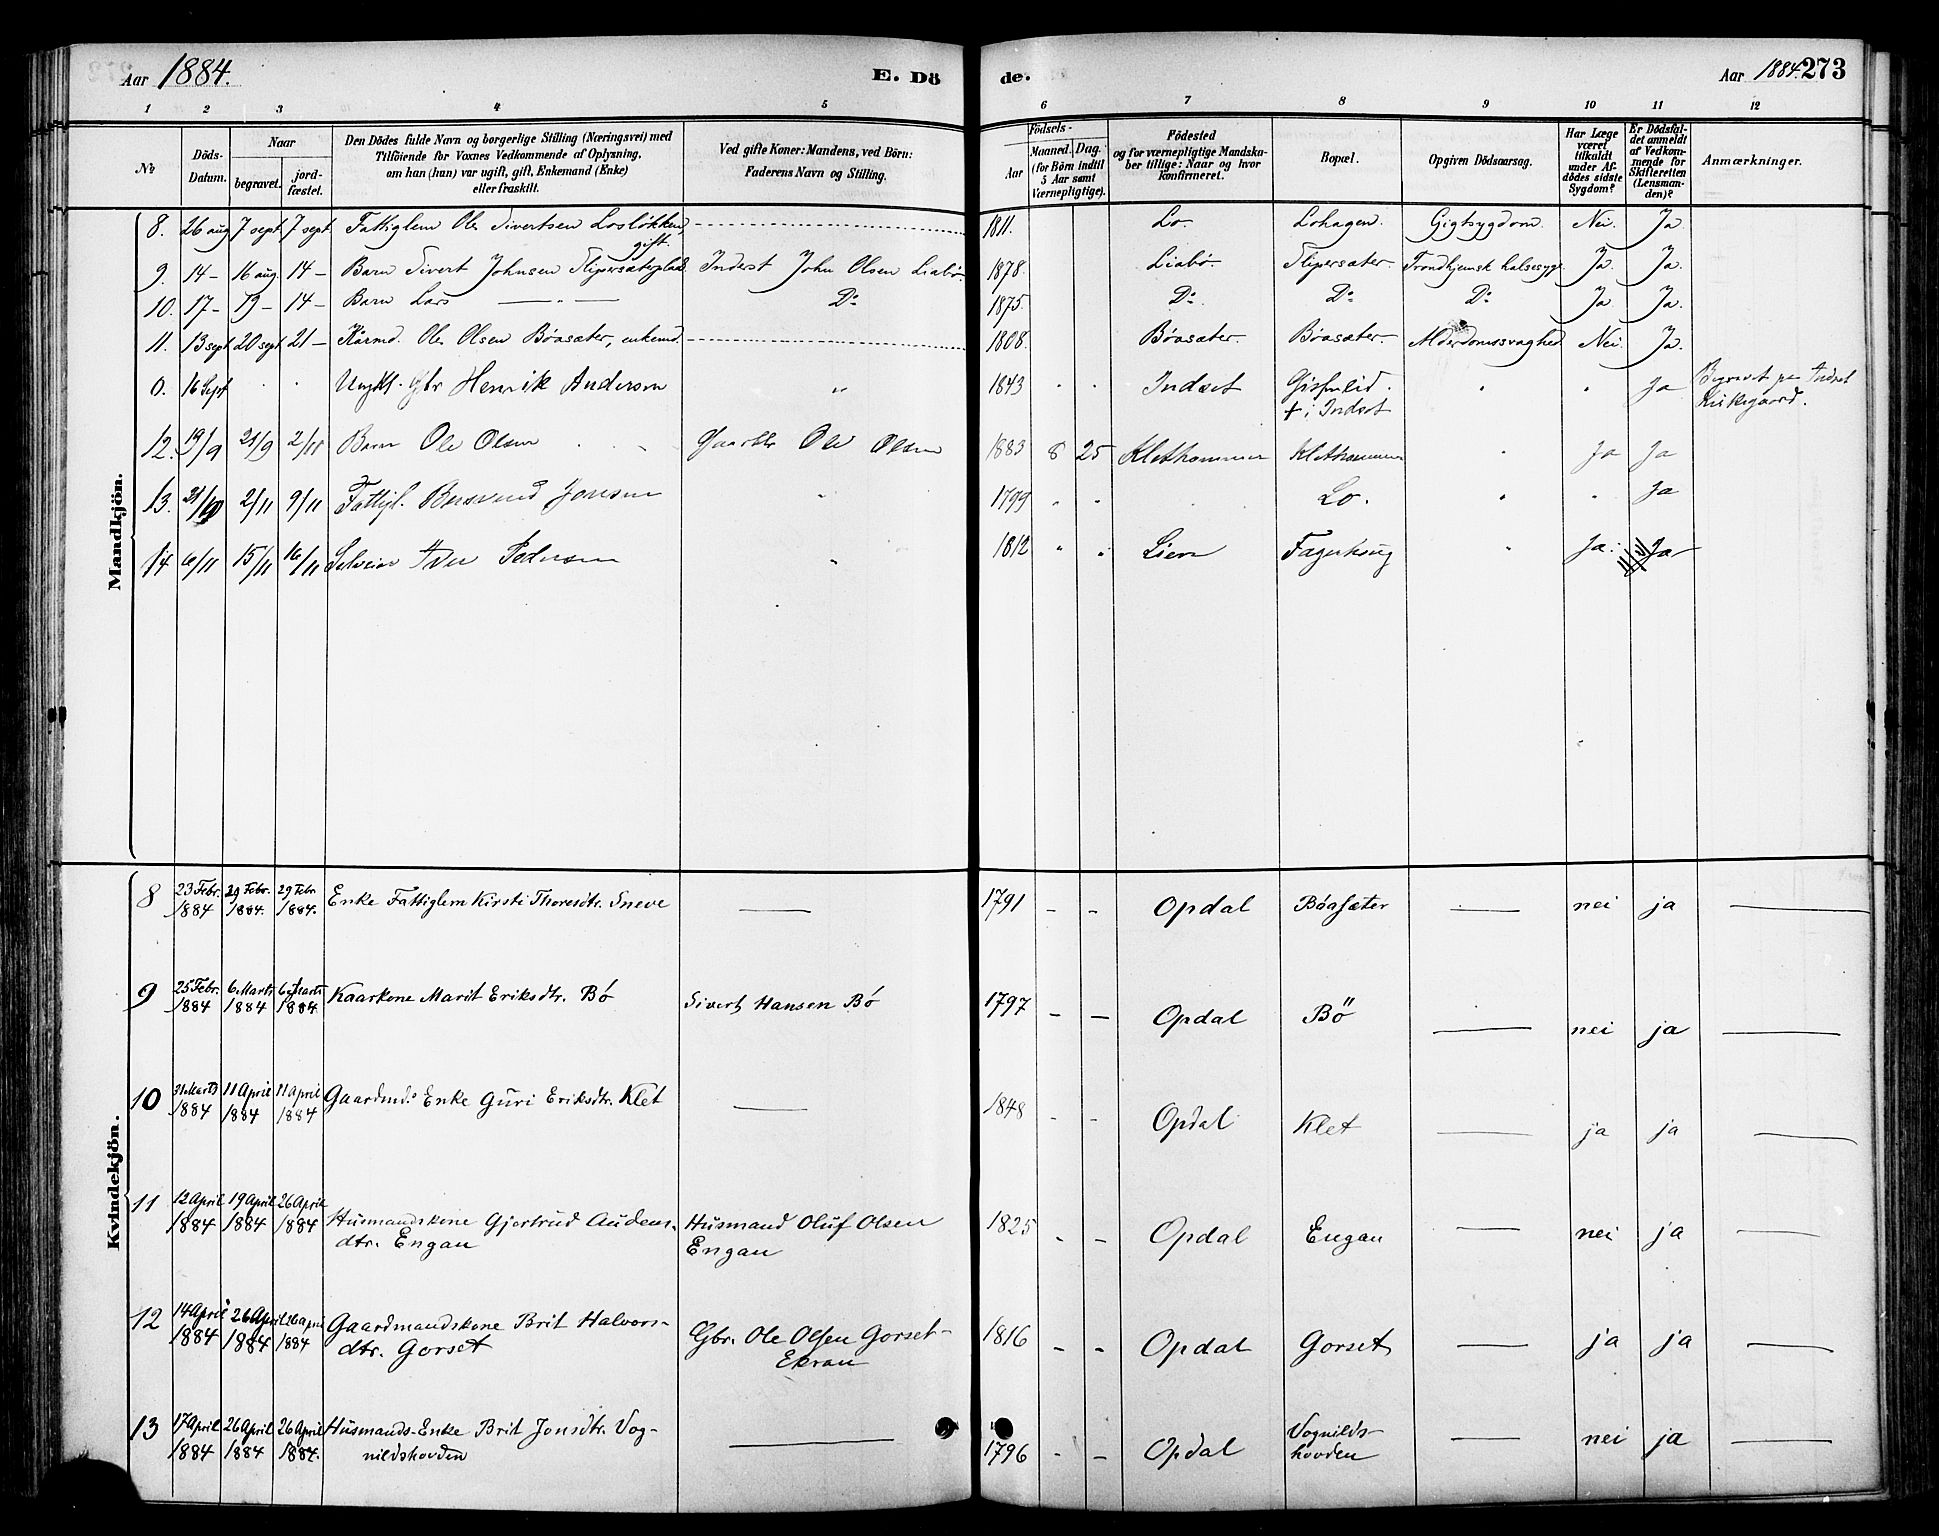 Aar 1884. E. Dö
de. Aar 1884. 273
1 2 3 4 5 6 7 8 9 10 11 12
No
Döds-Datum.
Naar
begravet.
jord-fæstet.
Den Dödes fulde Navn og borgerlige Stilling (Næringsvei) med
Tilföiende for Voxnes Vedkommende af Oplysning,
om han (hun) var ugift, gift, Enkemand (Enke)
eller fraskilt.
Ved gifte Koner: Mandens, ved Börn:
Faderens Navn og Stilling.
Födsels-
Aar
Maaned. Dag.
(for Börn indtil
5 Aar samt
Værnepligtige).
Födested
og for værnepligtige Mandska-
ber tillige: Naar og hvor
konfirmeret.
Bopæl.
Opgiven Dödsaarsag.
Har Læge
været
tilkaldt
under Af-
dödes sidste
Sygdom?
Er Dödsfal-
det anmeldt
af Vedkom-
mende for
Skifteretten
(Lensman-
den)?
Anmærkninger.
Mandkjön.
8. 26 aug 7 sept 7 sept Fattiglem Ole Sivertsen Losløkken, gift. 1811. Lo. Lohagen. Gigtsygdom. Nei. Ja.
9. 14 – 16 aug. 14 – Barn Sivert Johnsen Slipersæterplad Inderst John Olsen Liabø. 1878. Liabø. Slipersæter. Trondhjemsk halsesyge Ja. Ja.
10. 17 – 19 – 14 – Barn Lars — " — Do 1875. Do. Do Do Ja Ja.
11. 13 sept 20 sept 21 – Kårmd. Ole Olsen Bøasæter, enkemd. 1808. Bøasæter. Bøasæter. Alderdomssvaghed. Nei. Ja.
0. 16 Sept . . Ungkl. Gbr Henrik Andersen " 1843 " " Indset
+ i Indset " " Ja Begravet pa Indset
Kirkegaard.
12. 19/9 21/9 2/11 Barn Ole Olsen Gaardbr Ole Olsen 1883 8 25 Klethammer Klethammer " Ja Ja
13. 31/10 2/11 9/11 Fattigl. Jonsen " 1799 " " . Lo. " " Ja
14 6/11 15/11 16/11 Selveier Iver Pedersen " 1812 " " Lien Fagerhaug " Ja. Ja
Kvindekjön.
8 23 Febr. 1884 29 Febr. 1884. 29 Febr. 1884. Enke Fattiglem Kirsti Thoresdtr. Sneve — 1791 – – Opdal Bøasæter — nei ja —
9 25 Febr. 1884 6 Marts 1884 6 Marts 1884. Kaarkone Marit Eriksdtr. Bø Sivert Hansen Bø 1797 – – Opdal Bö — nei ja —
10 31 Marts 1884 11 April 1884 11 April 1884 Gaardmds Enke Guri Eriksdtr. Klet — 1848 – – Opdal Klet — ja ja —
11 12 April 1884 19 April 1884 26 April 1884 Husmandskone Gjertrud Audens-
dtr. Engan Husmand Oluf Olsen
Engan 1825 – – Opdal Engan — nei ja —
12 14 April 1884 26 April 1884 26 April 1884 Gaardmandskone Brit Halvors-
dtr. Gorset Gbr. Ole Olsen Gorset-
Ekran 1816 – – Opdal Gorset — ja ja —
13 17 April 1884 26 April 1884 26 April 1884. Husmands-Enke Brit Jonsdtr. Vog-
nildshovden — 1796 – – Opdal Vognilds-
hovden — nei ja —